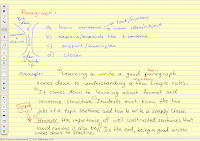 Paragraph:
a) topic sentence
b) explains/expands the t. sentence
c) support/examples
d) closer
Example: a) Learning to write a good paragraph
comes down to understanding a few simple rules.
b) It comes down to learning about format and
sentence structure. Students must know the two
jobs of a topic sentence and how to write a snappy closer.
c) However, the importance of well constructed sentences that
is also key. d) In the end, being a good writer
comes down to practice.